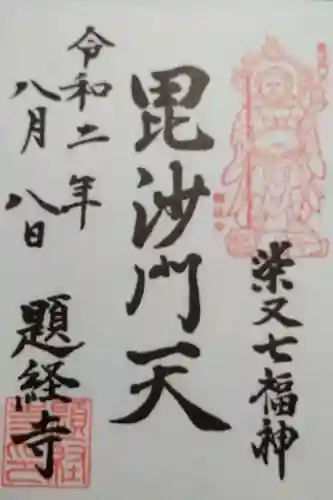 柴又七福神
毘沙門天
令和二年
八月八日
題経寺
題経寺之印